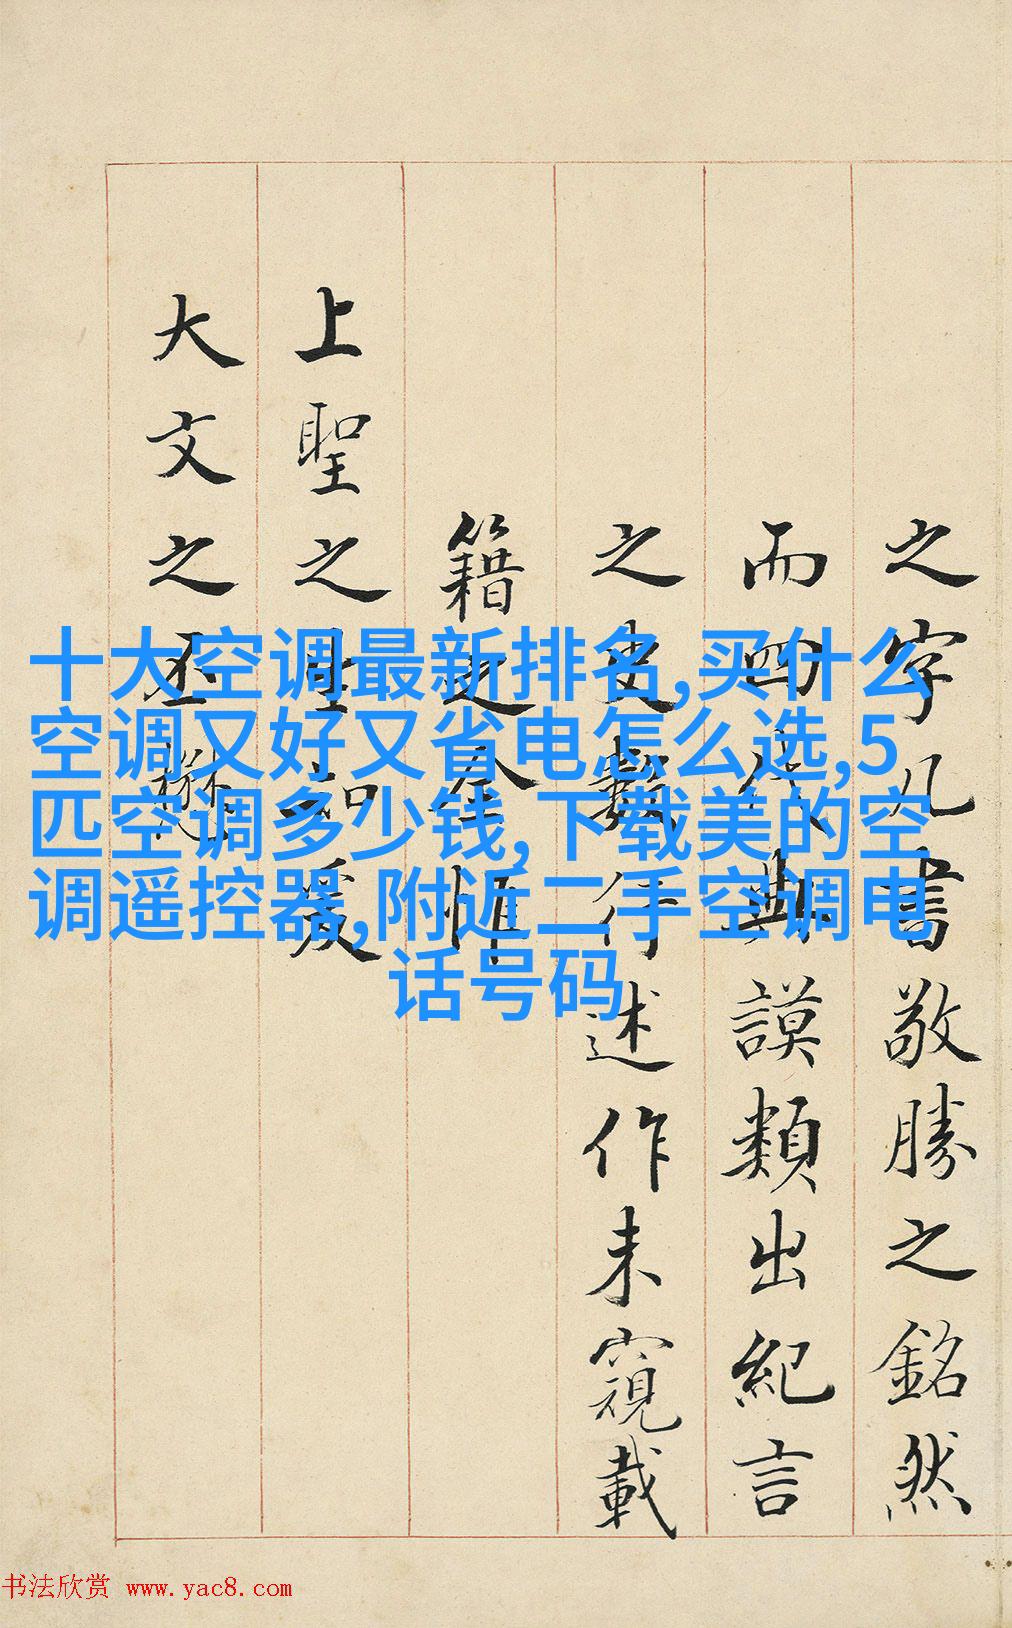 之字凡書敬勝之銘然
而四代典謨類出紀言
之史數行述作未窺載
籍之全惟
上聖之生知爰
大文之丕懋
十大空调最新排名,买什么
空调又好又省电怎么选,5
匹空调多少钱,下载美的空
调遥控器,附近二手空调电
话号码
书法欣赏 www.yac8.com